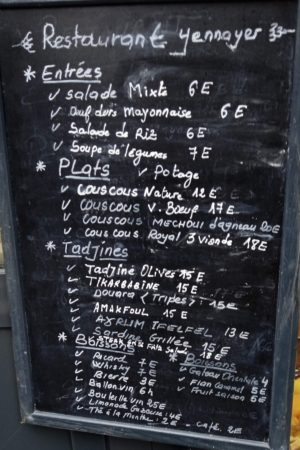 Restaurant yennayer
* Entrées
✓ Salade Mixte 6 E
✓ Œuf durs mayonnaise 6 E
✓ Salade de Riz 6 E
✓ Soupe de légumes 7 E
* PLATS ✓ Potage
✓ COUSCOUS Nature 12 E
✓ COUSCOUS V. Bœuf 17 E
✓ COUSCOUS MECHOUI d'agneau 20E
✓ COUS COUS Royal 3 Viande 18E
* Tadjines
✓ TADJINE OLIVES 15 E
✓ TIKARBABINE 15 E
✓ Douara (Tripes) 15E
✓ AMAKFOUL 15 E
✓ AXRUM IFELFEL 13 E
✓ Sardine Grillée 15 E
18 E
* Boissons
✓ Ricard 7 E
✓ Whisky 7 E
✓ Bierre 3E
✓ Ballon vin 6
✓ Bouteille vin 25E
✓ Limonade Gazouse 4E
✓ Thé à la Menthe 2E - Café 2E
✓ Gateau Orientale 4
✓ Flan Caramel 5E
✓ Fruit saison 6E